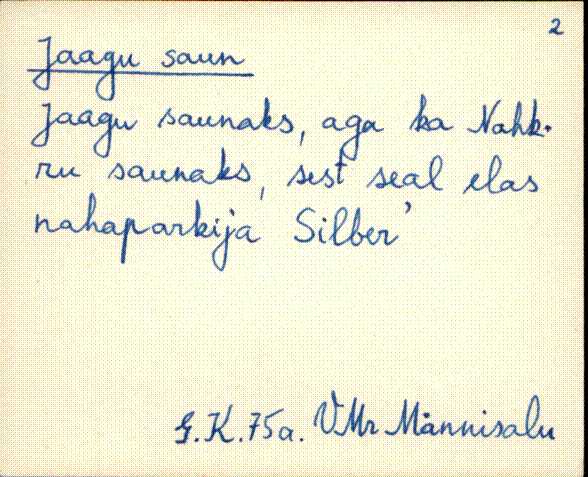 2
Jaagu saun
Jaagu saunaks, aga ka Nahk-
ru saunaks, sest seal elas
nahaparkija Silber'
G.K.75a. VMr Männisalu